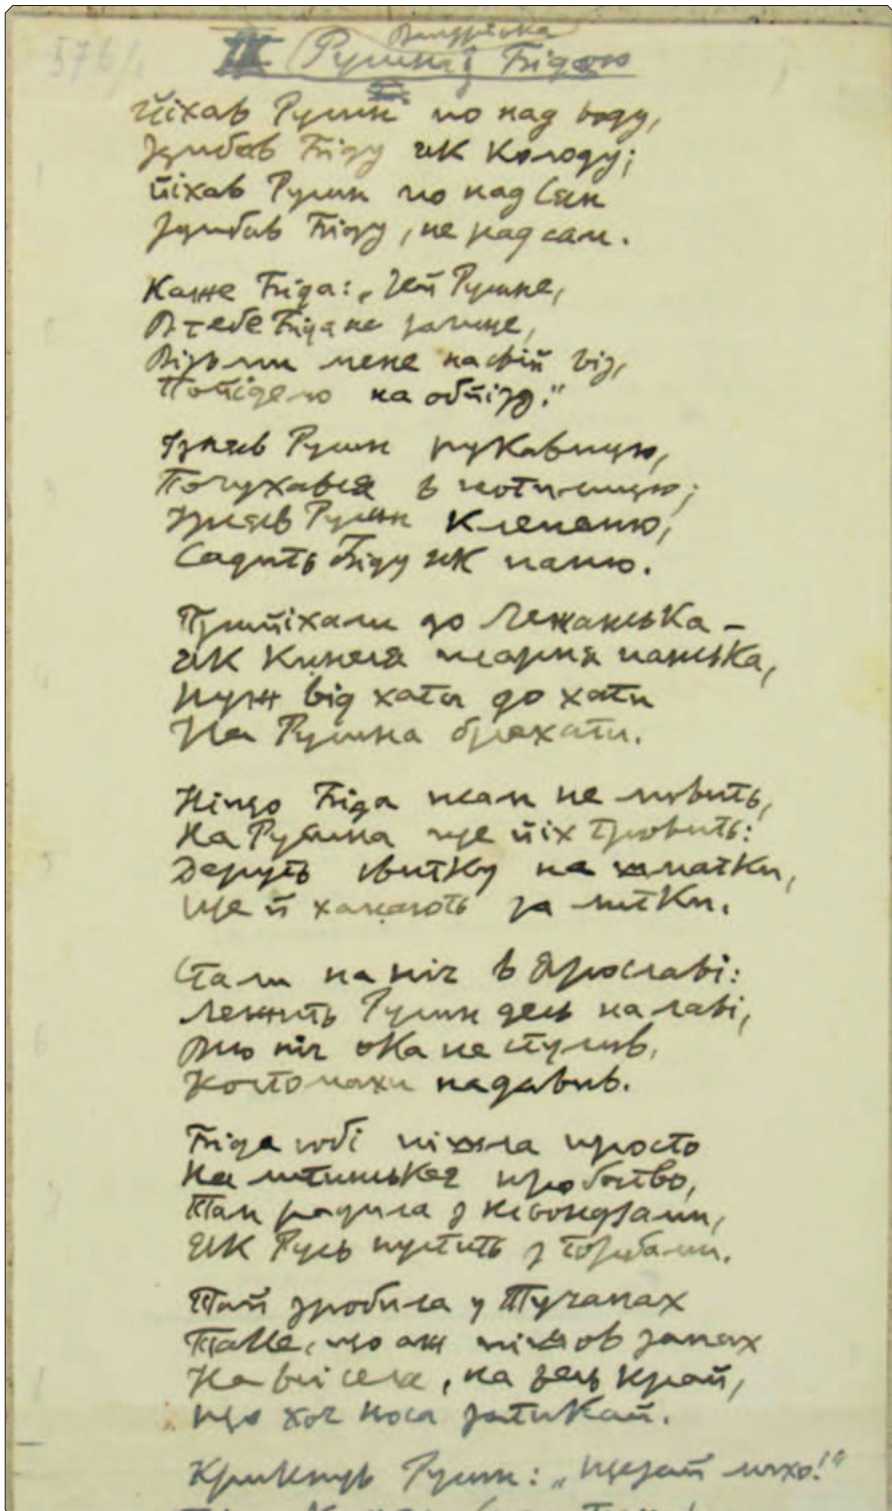 576/1
IX Мандрівка Русина з Бідою
Йіхав Русин по над воду,
Здибав Біду ик колоду;
Йіхав Русин по над Сян
Здибав Біду, не рад сам.
Каже Біда: „Гей Русине,
В тебе Біда не загине,
Візьми мене на свій віз,
Пойідемо на обйізд.“
Узяв Русин рукавицю,
Почухався в потилицю;
Узяв Русин кленаню,
Садить Біду ик паню.
Прийіхали до Лежанська –
ик кинеся псарня панська,
Нуж від хати до хати
На Русина брехати.
Ніцо Біда псам не мовить,
На Русина ще йіх тровить:
Деруть свитку на шматки,
Ще й хапають за литки.
Стали на ніч в Ярославі:
Лежить Русин десь на лаві,
Всю ніч ока не стулив,
Костомахи надавив.
Біда собі пішла просто
На латинське пробоство,
Там радила з ксьондзами,
ИК Русь пустить з торбами.
Тай зробила у Тучапах
Таке, що аж пішов запах
На всі села, на весь край,
Що хоч носа затикай.
Крикнув Русин: „Щезай лихо!“